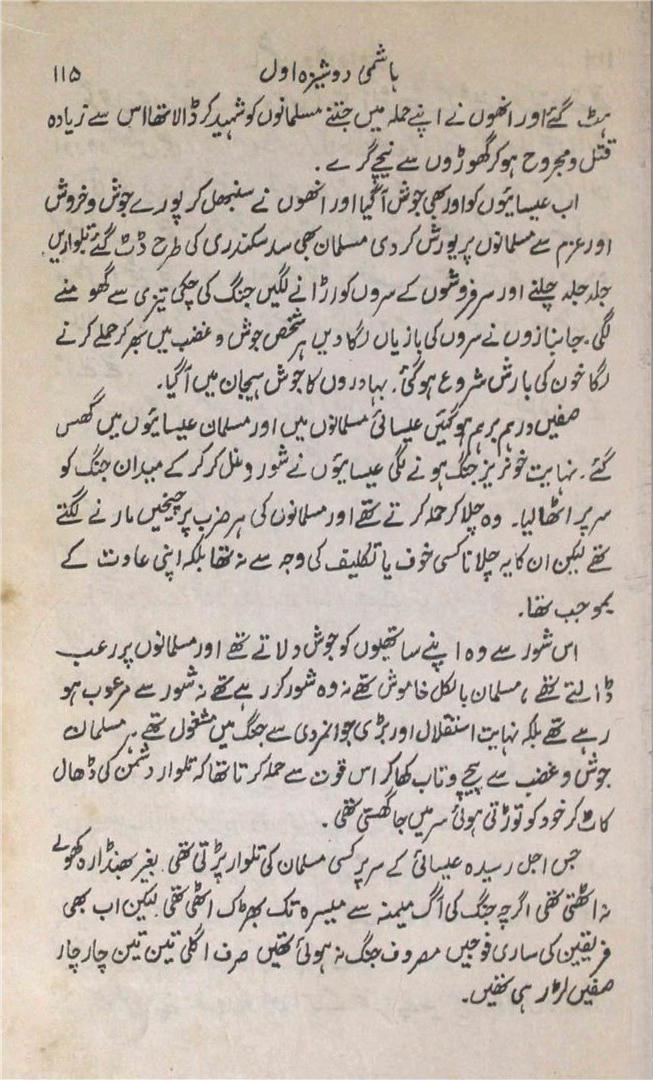 ہاشمی دوشیزہ اول ۱۱۵
ہٹ گئے اور انھوں نے اپنے حملہ میں جتنے مسلمانوں کو شہید کر ڈالا تھا اس سے زیادہ
قتل و مجروح ہو کر گھوڑوں سے نیچے گرے۔
اب عیسائیوں کو اور بھی جوش آ گیا اور انھوں نے سنبھل کر پورے جوش و خروش
اور عزم سے مسلمانوں پر یورش کر دی مسلمان بھی سد سکندری کی طرح ڈٹ گئے تلواریں
جلد جلد چلنے اور سرفروشوں کے سروں کو اڑانے لگیں جنگ کی چکی تیزی سے گھومنے
لگی۔ جانبازوں نے سروں کی بازیاں لگا دیں ہر شخص جوش و غضب میں بھر کر حملے کرنے
لگا خون کی بارش شروع ہو گئی۔ بہادروں کا جوش ہیجان میں آ گیا۔
صفیں درہم برہم ہو گئیں عیسائی مسلمانوں میں اور مسلمان عیسائیوں میں گھس
گئے۔ نہایت خونریز جنگ ہونے لگی عیسایوں نے شور و غل کر کر کے میدان جنگ کو
سر پر اٹھا لیا۔ وہ چلا کر حملہ کرتے تھے اور مسلمانوں کی ہر ضرب پر چیخیں مارنے لگتے
تھے لیکن ان کا یہ چلانا کسی خوف یا تکلیف کی وجہ سے نہ تھا بلکہ اپنی عادت کے
بموجب تھا۔
اس شور سے وہ اپنے ساتھیوں کو جوش دلاتے تھے اور مسلمانوں پر رعب
ڈالتے تھے، مسلمان بالکل خاموش تھے نہ وہ شور کر رہے تھے نہ شور سے مرعوب ہو
رہے تھے بلکہ نہایت استقلال اور بڑی جوانمردی سے جنگ میں مشغول تھے۔ ہر مسلمان
جوش و غضب سے پیچ و تاب کھا کر اس قوت سے حملہ کرتا تھا کہ تلوار دشمن کی ڈھال
کاٹ کر خود کو توڑتی ہوئی سر میں جا گھستی تھی۔
جس اجل رسیدہ عیسائی کے سر پر کسی مسلمان کی تلوار پڑتی تھی بغیر بھنڈارہ کھولے
نہ اٹھتی تھی اگرچہ جنگ کی آگ میمنہ سے میسرہ تک بھڑک اٹھی تھی لیکن اب بھی
فریقین کی ساری فوجیں مصروف جنگ نہ ہوئی تھیں صرف اگلی تین تین چار چار
صفیں لڑ رہی تھیں۔